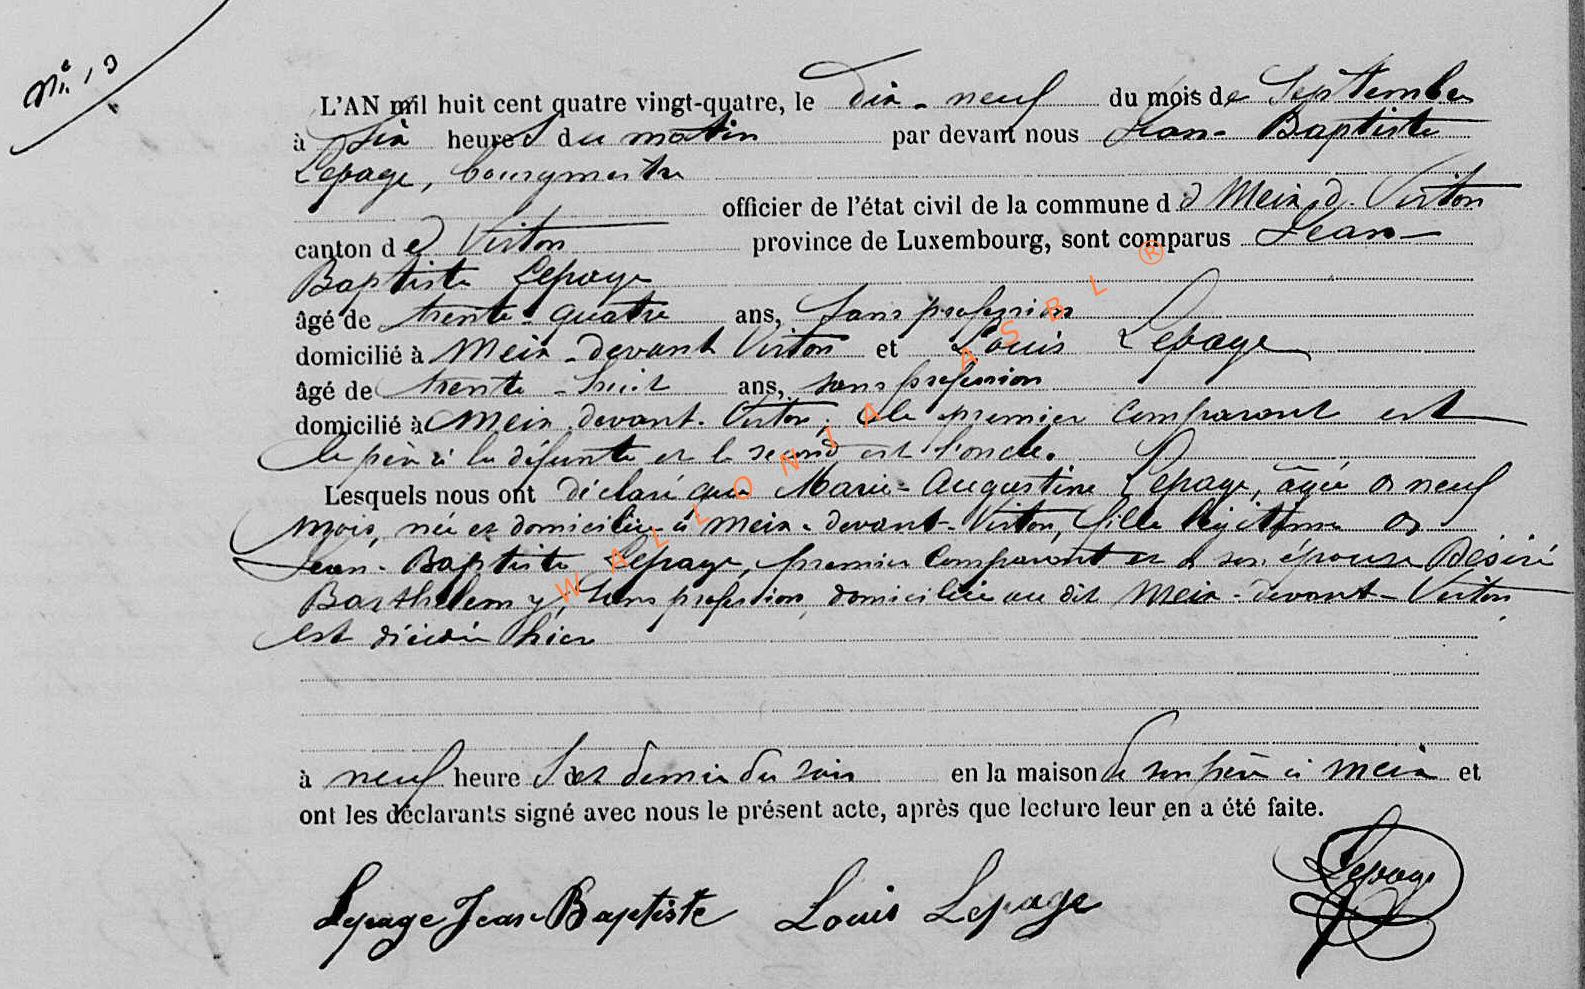 N° 13
L'AN mil huit cent quatre vingt-quatre, le dix-neuf du mois de Septembre
à six heures du matin par devant nous Jean-Baptiste
Lepage, bourgmestre
officier de l'état civil de la commune de Meix-d-Virton
canton de Virton province de Luxembourg, sont comparus Jean-
Baptiste Lepage
âgé de trente-quatre ans, sans profession
domicilié à Meix-devant Virton et Louis Lepage
âgé de trente-huit ans, sans profession
domicilié à Meix-devant-Virton; le premier comparant est
le père à la défunte et le second est l'oncle.
Lesquels nous ont déclaré que Marie-Augustine Lepage, âgée de neuf
mois, née et domiciliée à Meix-devant-Virton, fille légitime de
Jean-Baptiste Lepage, premier comparant et de son épouse Désiré
Barthelemy, sans profession, domiciliée au dit Meix-devant-Virton,
est décédée hier
à neuf heures et demie du soir en la maison de son père à Meix et
ont les déclarants signé avec nous le présent acte, après que lecture leur en a été faite.
Lepage Jean Baptiste Louis Lepage Lepage
WALLONIA ASBL ®